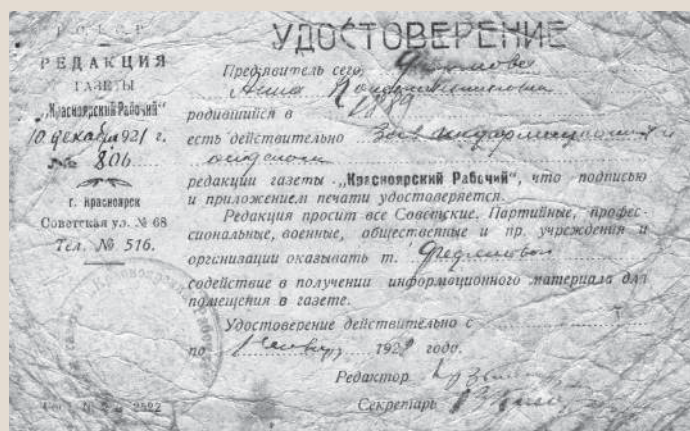 Р.С.Ф.С.Р.
РЕДАКЦИЯ
ГАЗЕТЫ
„Красноярский Рабочий“
10 декабря 1921 г.
№ 806
г. Красноярск
Советская ул. № 68
Тел. № 516.
УДОСТОВЕРЕНИЕ
Предъявитель сего,
Анна Константиновна
родившийся в 1889
есть действительно Зав. информационным
отделом
редакции газеты „Красноярский Рабочий“, что подписью
и приложением печати удостоверяется.
Редакция просит все Советские, Партийные, профес-
сиональные, военные, общественные и пр. учреждения и
организации оказывать т.
содействие в получении информационного материала для
помещения в газете.
Удостоверение действительно с
по 1 январ 1922 года.
Редактор
Секретарь